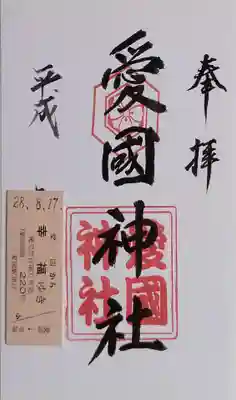 奉拝
愛國神社
愛國
神社
平成
28.8.17
愛国から
幸福ゆき
220円